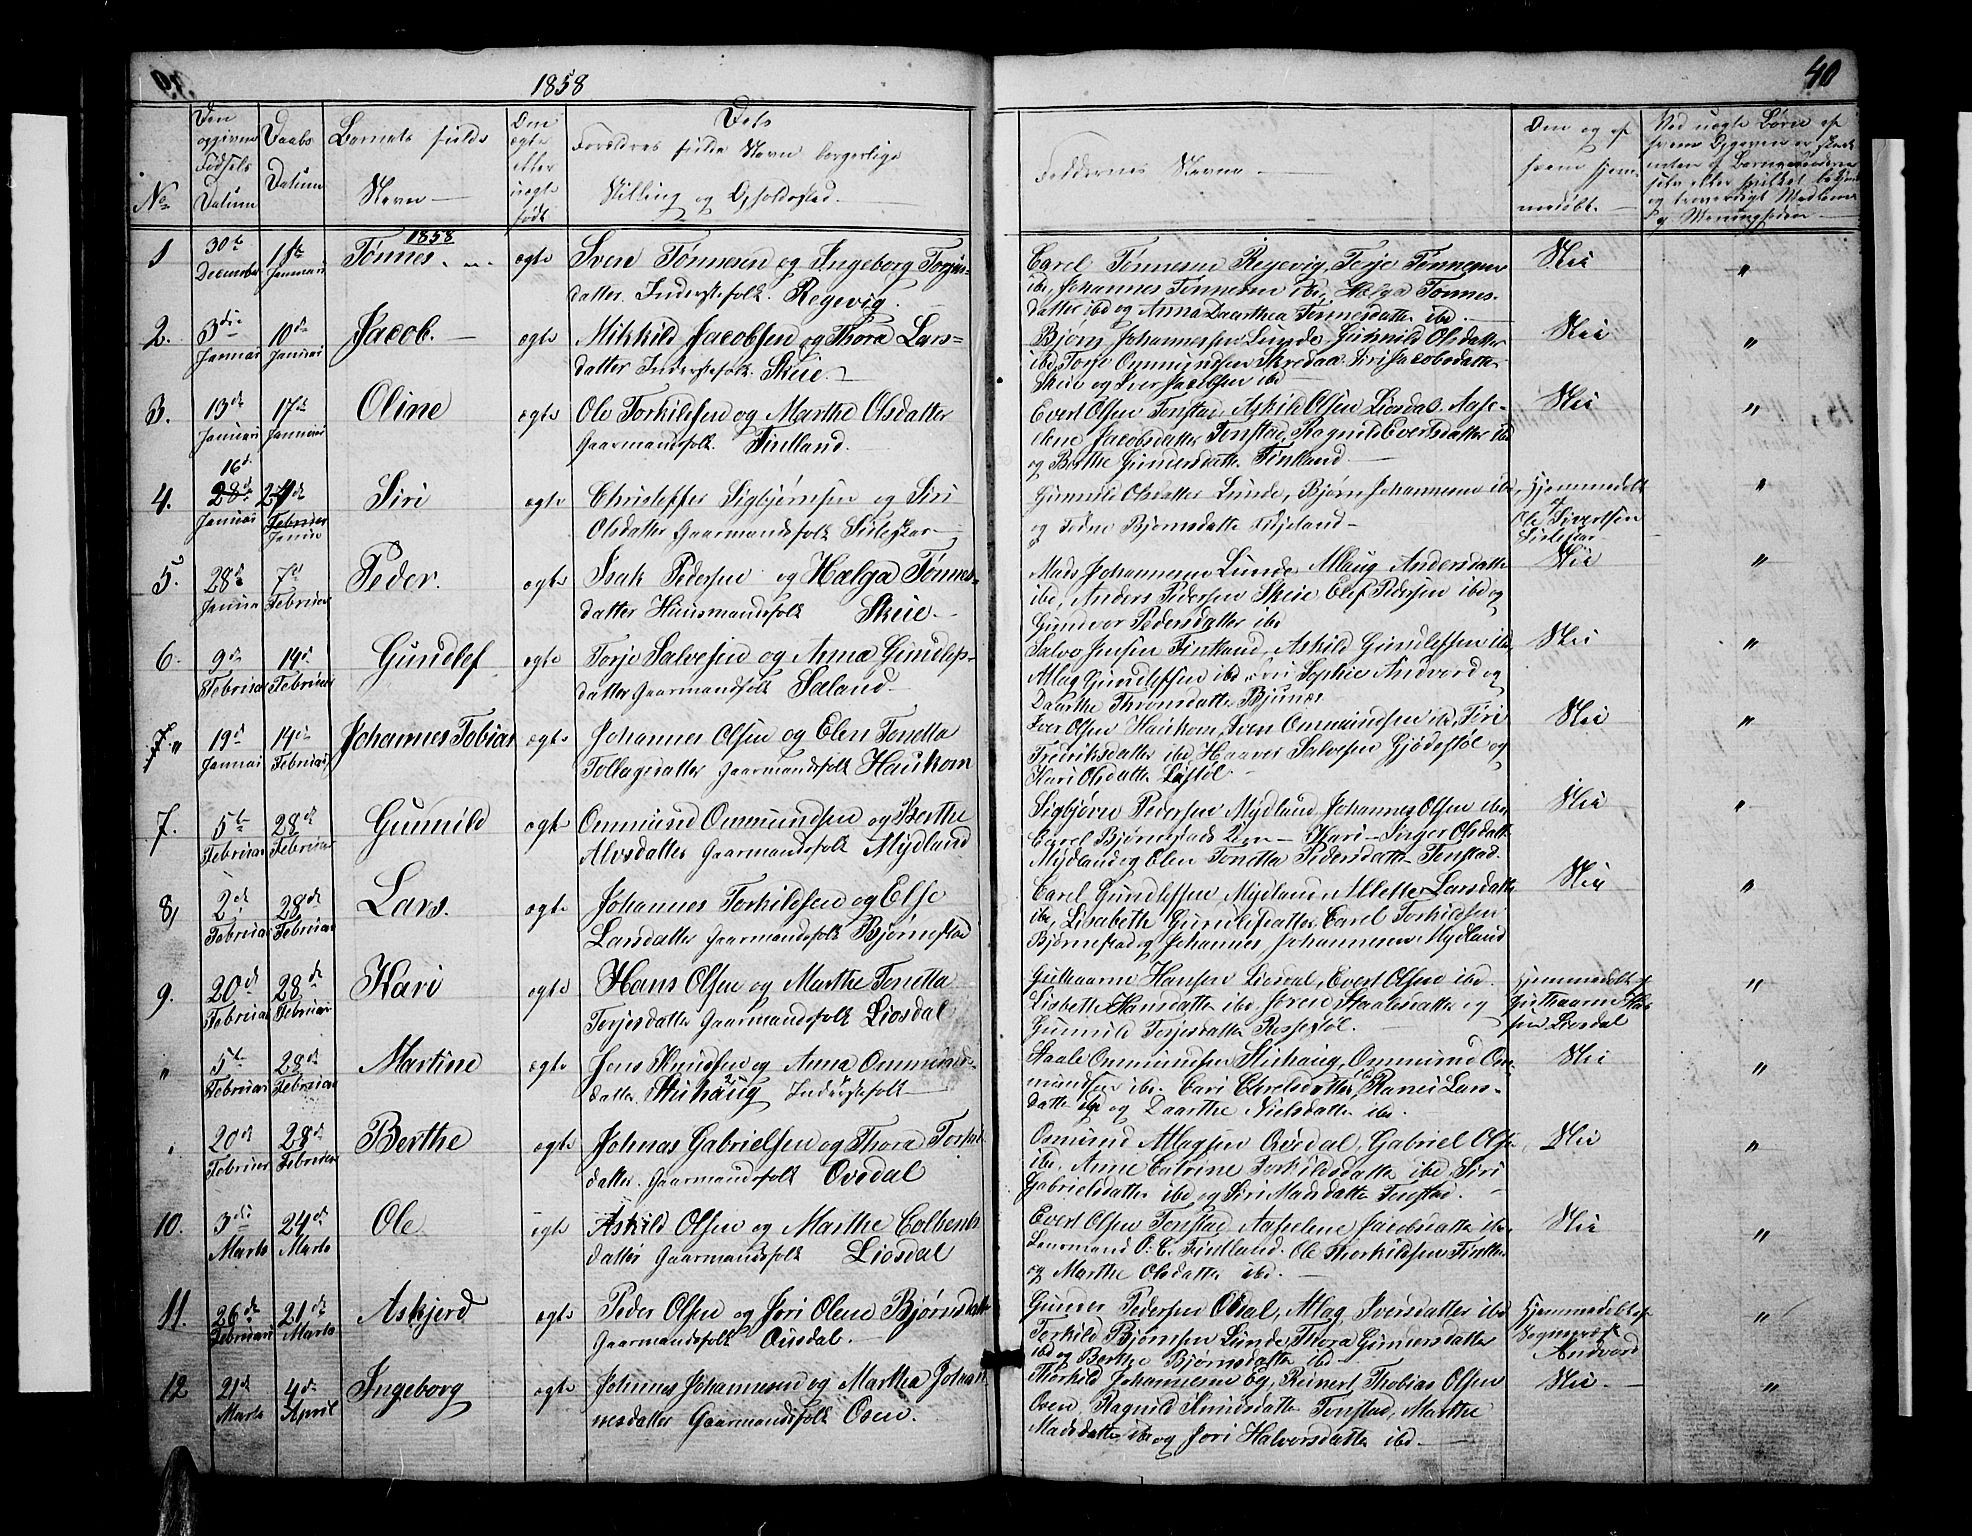 1858
40
No
Den opgivne Fødsels Datum
Daabs Datum
Barnets fulde Navn
Om ægte eller uægte født
Dets Forældres fulde Navn borgerlige Stilling og Opholdssted.
Faddernes Navne
Om og af hvem hjemmedøbt
1858
1 30te December 1ste Januari Tønnes ægte Sven Tønnesen og Ingeborg Torjus-
datter Inderstefolk. Regevig.
Carel Tønnesen Regevig, Terje Tønnesen
ibd, Johannes Tønnesen ibd, Hælga Tønnes-
datter ibd og Anna Daarthea Tønnesdatter ibd.
Nei "
2. 3die Januari 10de Januari Jacob. ægte Mikkild Jacobsen og Thora Lars-
datter Inderstefolk. Skeie.
Bjørn Johannessen Lunde Gunnild Olsdatter
ibd, Torje Ommundsen Skredaa Siri Jacobsdatter
Skeie og Iver Jacobsen ibd
Nei "
3. 13de Januari 17de Januari Oline ægte Ole Torkildsen og Marthe Olsdatter
Gaarmandsfolk Fintland.
Evert Olsen Tonstad, Askild Olsen Liosdal, Aase-
lene Jacobsdatter Tonstad, Ragnild Evertsdatter ibd
og Berthe Gunersdatter Fintland.
Nei "
4. 16de 28de Januari 24de Februar Januar Siri ægte Christoffer Sigbjørnsen og Siri
Olsdatter Gaarmandsfolk Sirleskar
Gunnild Olsdatter Lunde, Bjørn Johannesen ibd,
og Tedne Bjørnsdatter Fidjeland
Hjemmedøbt af Ole Sivertsen Sirleskar "
5. 28de Januar 7de Februar Peder. ægte Isak Pedersen og Hælga Tønnes-
datter Huusmandsfolk Skeie.
Mads Johannesen Lunde, Allaug Andersdatter
ibd, Anders Pedersen Skeie Elef Pedersen ibd og
Gunvor Pedersdatter ibd
Nei "
6. 9de Februar 14de Februar Gundlef ægte Torje Salvesen og Anna Gundlefs-
datter Gaarmandsfolk Sæland
Salve Jensen Fintland, Askild Gundlefsen ibd,
Atlag Gundlefsen ibd, Sophie Andvord og
Daarthe Thronsdatter Bjunes
Nei "
7. 19de Januari 14de Februari Johannes Tobias ægte Johannes Olsen og Elen Tonetta
Tollagsdatter Gaarmandsfolk Haukom
Iver Olsen Haukom, Sven Ommundsen ibd, Jøri
Fredriksdatter ibd, Haaver Salvesen Gjødestøl og
Kari Olsdatter Løgstøl
Nei "
7. 5te Februar 28de Februar Gunnild ægte Ommund Ommundsen og Berthe
Alvsdatter Gaarmandsfolk Mydland
Sigbjørn Pedersen Mydland, Johannes Olsen ibd
Carel Bjørnestads Kari Inger Olsdatter
Mydland og Elen Tonetta Pedersdatter Tonstad.
Nei "
8, 2de Februar 28de Februar Lars. ægte Johannes Torkildsen og Else
Larsdatter Gaarmandsfolk Bjørnestad
Carel Gundlefsen Mydland, Allette Larsdatter
ibd, Lisabeth Gundlefsdatter, Carel Torkildsen
Bjørnestad og Johannes Johannesen Mydland
Nei "
9. 20de Februar 28de Februar Kari ægte Hans Olsen og Marthe Tonetta
Torjesdatter Gaarmandsfolk Liosdal
Gutkaarm Hansen Liosdal, Evert Olsen ibd.
Lisbeth Hansdatter ibd. Jøren Staalesdatter og
Gunnild Torjesdatter Rossestøl.
Hjemmedøbt af Gutkaarm Hansen Liosdal "
" 5te Februar 28de Februar Martine ægte Jens Knudsen og Anna Ommunds-
datter Stuhaug Inderstefolk
Staale Ommundsen Stuhaug, Ommund Om-
mundsen ibd. Cari Carelsdatter, Ranei Lars-
datter ibd og Daarthe Nielsdatter ibd.
Nei "
" 20de Februar 28de Februar Berthe ægte Johnas Gabrielsen og Thora Torkil
datter Gaarmandsfolk Ousdal
Osmund Atlagsen Ousdal, Gabriel Olsen
ibd, Anne Catrine Torkildsdatter ibd, Siri
Gabrielsdatter ibd og Siri Madsdatter Tonstad.
Nei "
10. 3die Marts 24de Marts Ole ægte Askild Olsen og Marthe Colbens-
datter Gaarmandsfolk Liosdal
Evert Olsen Tonstad, Aaselene Jacobsdatter ibd
Lensmand O. E. Fintland. Ole Thorkildsen Fintland
og Marthe Olsdatter ibd.
Nei "
11. 26de Februari 21de Marts Askjerd ægte Peder Olsen og Jøri Olene Bjørnsdatter
Gaarmandsfolk Ousdal.
Guner Pedersen Osdal, Atlag Iversdatter ibd
Torkild Bjørnsen Lunde, Thora Gunersdatter
ibd og Berthe Bjørnsdatter ibd
Hjemmedøbt af Sognepræst Andvord "
12 21de Marts 4de April Ingeborg ægte Johnnes Johannesen og Martha Johan
nesdatter Gaarmandsfolk Osen.
Thorkild Johannesen Eg, Reinert Thobias Olsen
Osen, Ragnild Knudsdatter Tonstad, Marthe
Madsdatter ibd og Jøri Halvorsdatter ibd.
Nei "